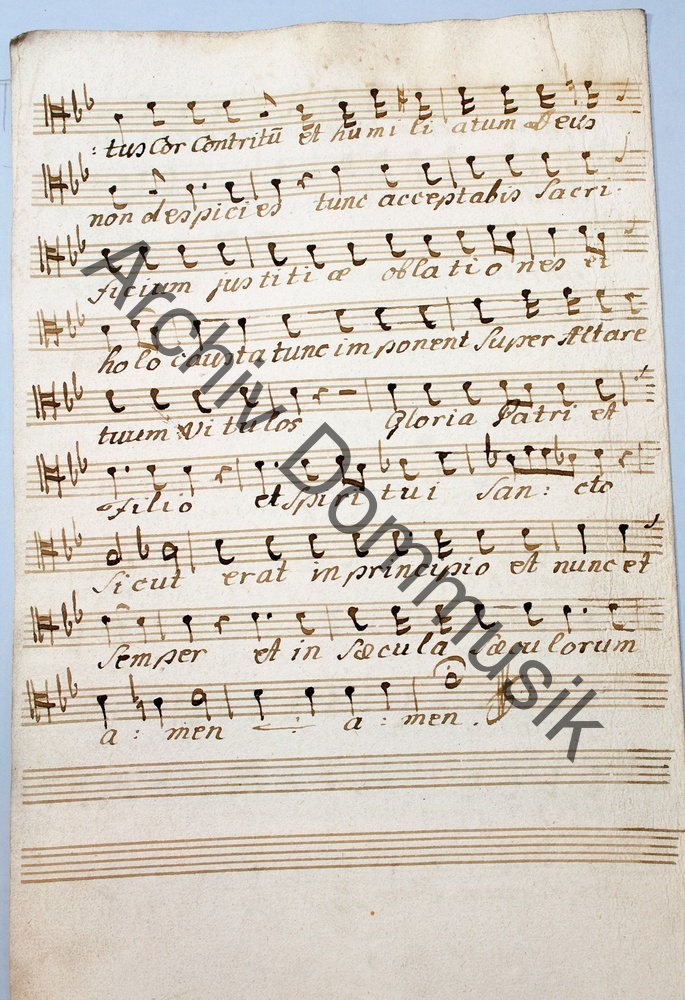 : tus Cor Contritū et humi li atum Deus
non despici es tunc acceptabis Sacri:
ficium justiti æ oblatio nes et
holo causta tunc imponent Super Altare
tuum Vi tulos Gloria Patri et
Filio et Spiri tui San: cto
Sicut erat in principio et nunc et
Semper et in Sæcula Sæculorum
a: men a: men.
Archiv Dommusik